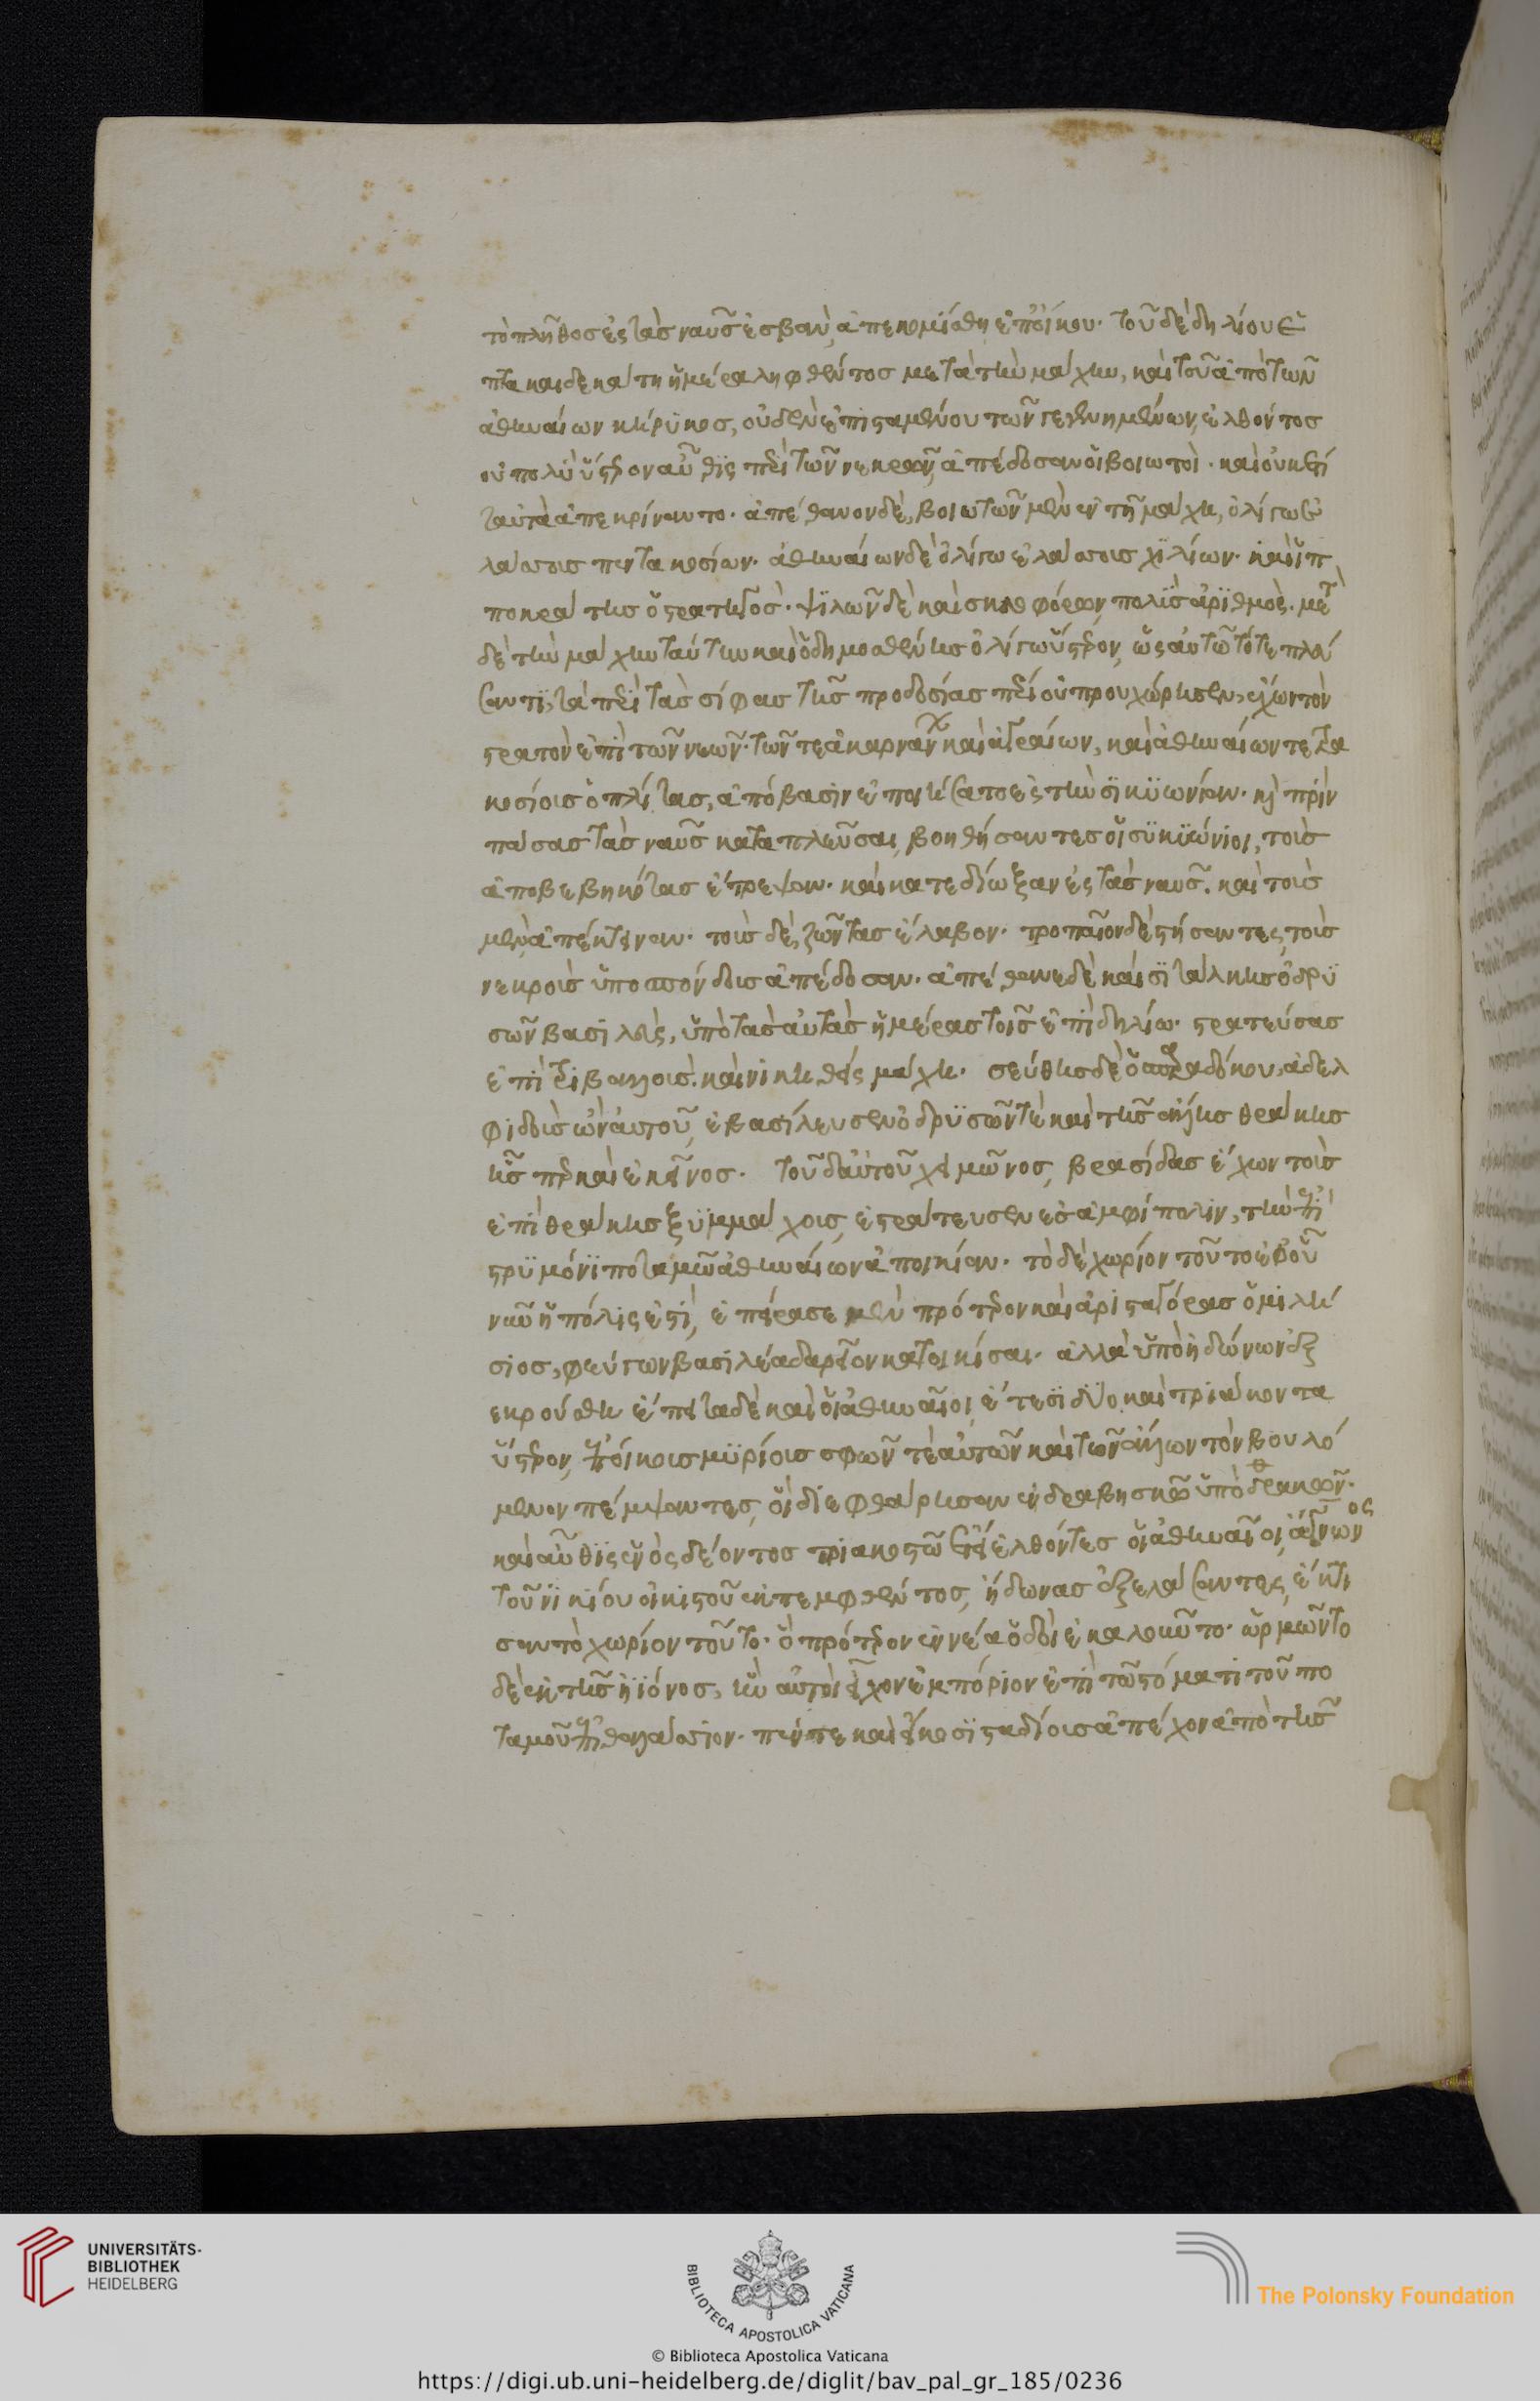 τὸ πλῆθος ἐς τὰς ναῦς ἐσβὰν, ἀπεκομίσθη ἐπ' οἴκου. τοῦ δὲ δηλίου ἑ
πτακαιδεκάτη ἡμέρα ληφθέντος μετὰ τὴν μάχην, καὶ τοῦ ἀπὸ τῶν
ἀθηναίων κήρυκος, οὐδὲν ἐπισταμένου τῶν γεγενημένων, ἐλθόντος
οὐ πολὺ ὕστερον αὖθις περὶ τῶν νεκρῶν, ἀπέδοσαν οἱ βοιωτοὶ. καὶ οὐκέτι
ταὐτὰ ἀπεκρίναντο. ἀπέθανον δὲ, βοιωτῶν μὲν ἐν τῆ μάχη, ὀλίγω ἐ
λάσσους πεντακοσίων. ἀθηναίων δὲ ὀλίγω ἐλάσσους χιλίων. καὶ ἱπ
ποκράτης ὁ στρατηγὸς. ψιλῶν δὲ καὶ σκευοφόρων, πολὺς ἀριθμὸς. μετὰ
δὲ τὴν μάχην ταύτην καὶ ὁ δημοσθένης ὀλίγω ὕστερον, ὡς αὐτῶ τότε πλεύ
σαντι, τὰ περὶ τὰς σίφας τῆς προδοσίας πέρι οὐ προυχώρησεν, ἔχων τὸν
στρατὸν ἐπὶ τῶν νεῶν. τῶν τε ἀκαρνάνων καὶ ἀγραίων, καὶ ἀθηναίων τετρα
κοσίους ὁπλίτας, ἀπόβασιν ἐποιήσατο ἐς τὴν σικυωνίαν. καὶ πρὶν
πάσας τὰς ναῦς καταπλεῦσαι, βοηθήσαντες οἱ συκιώνιοι, τοὺς
ἀποβεβηκότας ἔτρεψαν. καὶ κατεδίωξαν ἐς τὰς ναῦς. καὶ τοὺς
μὲν ἀπέκτειναν. τοὺς δὲ, ζῶντας ἔλαβον. τροπαῖον δὲ στήσαντες, τοὺς
νεκροὺς ὑποσπόνδους ἀπέδοσαν. ἀπέθανε δὲ καὶ σιτάλκης ὀδρυ
σῶν βασιλεὺς, ὑπὸ τὰς αὐτὰς ἡμέρας τοῖς ἐπὶ δηλίω. στρατεύσας
ἐπὶ τριβαλλοὺς. καὶ νικηθεὶς μάχη. σεύθης δὲ ὁ σπαραδόκου, ἀδελ
φιδοὺς ὢν αὐτοῦ, ἐβασίλευσεν ὀδρυσῶν τὲ καὶ τῆς ἄλλης θράκης
ἧς περ καὶ ἐκεῖνος. τοῦ δ' αὐτοῦ χειμῶνος, βρασίδας ἔχων τοὺς
ἐπὶ θράκης ξυμμάχους, ἐστράτευσεν ἐς ἀμφίπολιν, τὴν ἐπὶ
στρυμόνι ποταμῶ ἀθηναίων ἀποικίαν. τὸ δὲ χωρίον τοῦτο ἐφ' οὗ
νῦν ἡ πόλις ἐστὶ, ἐπείρασε μὲν πρότερον καὶ ἀρισταγόρας ὁ μιλή
σιος, φεύγων βασιλέα δαρεῖον κατοικίσαι. ἀλλὰ ὑπὸ ἠδώνων ἐξ
εκρούσθη ἔπειτα δὲ καὶ οἱ ἀθηναῖοι, ἔτεσι δύο καὶ τριάκοντα
ὕστερον, ἐποίκους μυρίους σφῶν τὲ αὐτῶν καὶ τῶν ἄλλων τὸν βουλό
μενον πέμψαντες, οἳ διεφθάρησαν ἐν δραβησκῶ ὑπὸ θρακῶν.
καὶ αὖθις ἑνὸς δέοντος τριακοστῶ ἔτει ἐλθόντες οἱ ἀθηναῖοι, ἅγνωνος
τοῦ νικίου οἰκιστοῦ ἐκπεμφθέντος, ἠδωνας ἐξελάσαντες, ἔκτι
σαν τὸ χωρίον τοῦτο. ὃ πρότερον ἐννέα ὁδοὶ ἐκαλοῦντο. ὡρμῶντο
δὲ ἐκ τῆς ἠϊόνος, ἣν αὐτοὶ εἶχον ἐμπόριον ἐπὶ τῶ στόματι τοῦ πο
ταμοῦ ἐπιθαλάσσιον. πέντε καὶ εἴκοσι σταδίους ἀπέχον ἀπὸ τῆς
UNIVERSITÄTS-
BIBLIOTHEK
HEIDELBERG
BIBLIOTECA APOSTOLICA VATICANA
The Polonsky Foundation
© Biblioteca Apostolica Vaticana
https://digi.ub.uni-heidelberg.de/diglit/bav_pal_gr_185/0236